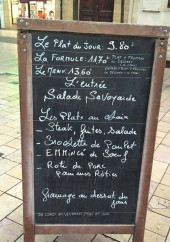 Le Plat du Jour 9.80
La Formule: 11.70
Le Menu 13.60
L'entrée
Salade Savoyarde
Les Plats au choix
- Steak, frites, salade
- Brochette de Poulet
- EMMINCÉ de Boeuf
Roti de Porc
pommes Rôties
Fromage ou dessert du
jour